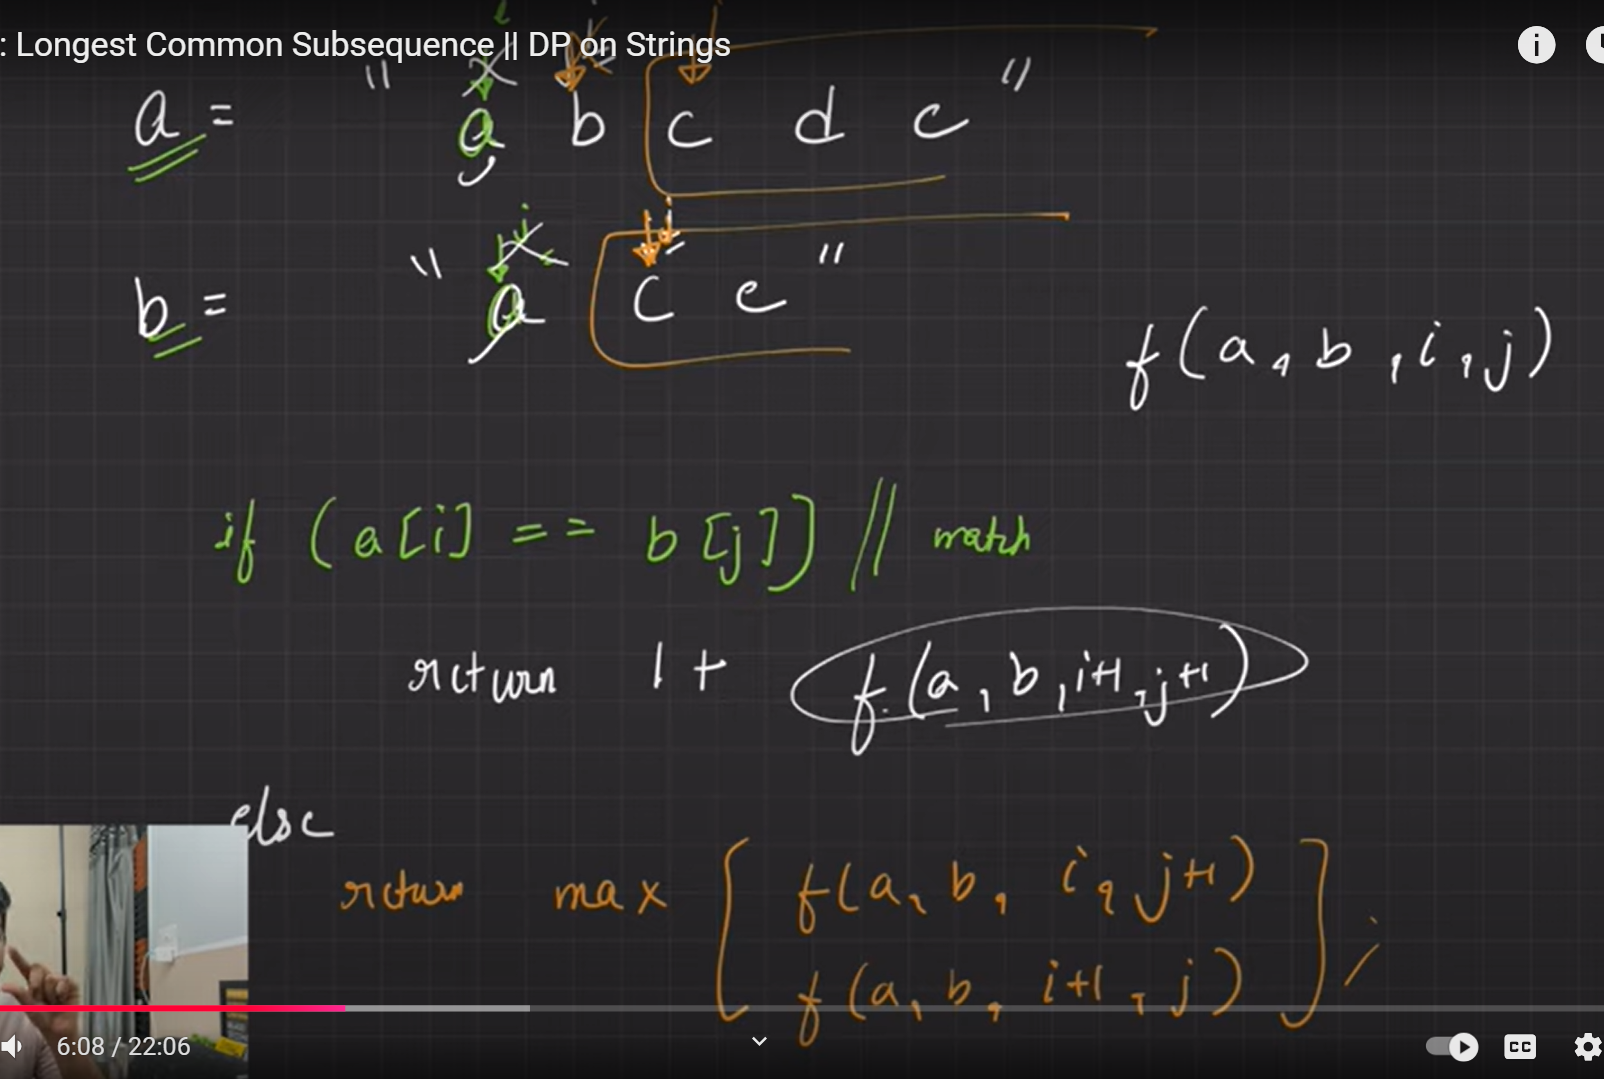 : Longest Common Subsequence || DP on Strings
a = " a b c d e "
b = " a c e "
f(a, b, i, j)
if (a[i] == b[j]) // match
return 1 + f(a, b, i+1, j+1)
else
return max [ f(a, b, i, j+1)
f(a, b, i+1, j) ] ;
6:08 / 22:06
CC